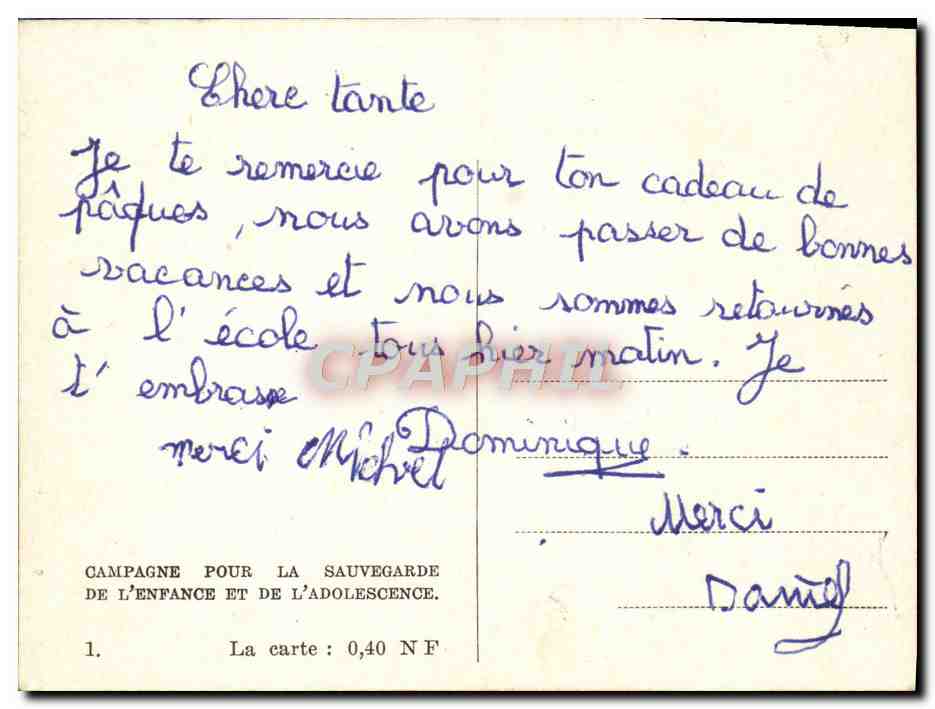 Chere tante
Je te remercie pour ton cadeau de
pâques, nous avons passer de bonnes
vacances et nous sommes retournés
à l'école tous hier matin. Je
t'embrasse
Dominique.
merci Michel
Merci
Daniel
CAMPAGNE POUR LA SAUVEGARDE
DE L'ENFANCE ET DE L'ADOLESCENCE.
1. La carte : 0,40 NF
CPAPHIL